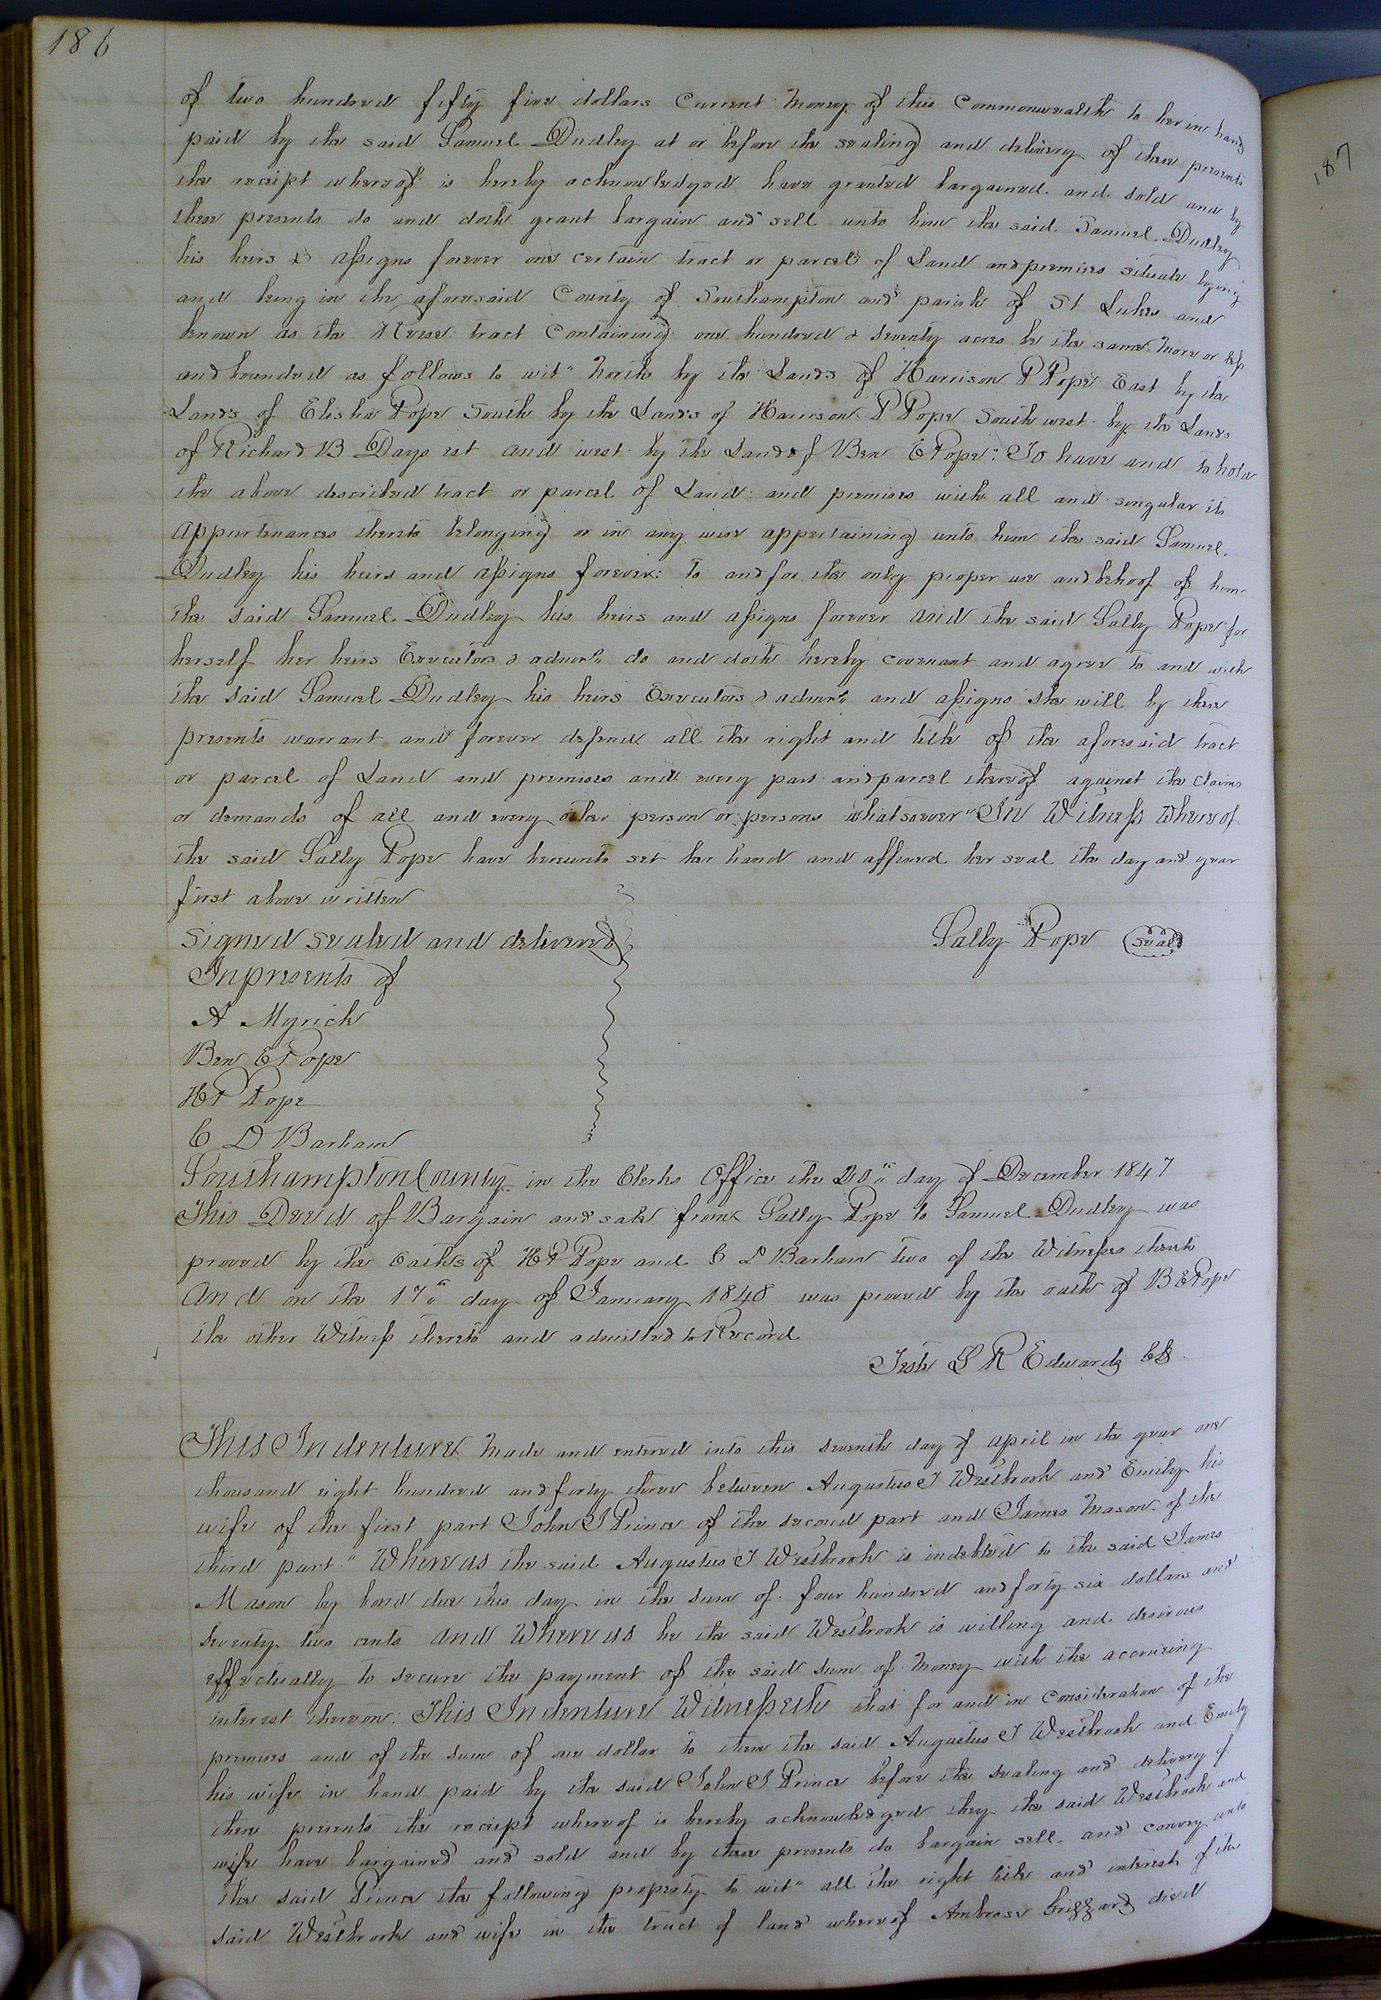 186
of two hundred fifty five dollars Current money of this Commonwealth to her in hand
paid by the said Samuel Dudley at or before the sealing and delivery of these presents
the receipt whereof is hereby acknowledged have granted bargained and sold and by
these presents do and doth grant bargain and sell unto him the said Samuel Dudley
his heirs & assigns forever one certain tract or parcel of Land and premises situate lying
and being in the aforesaid County of Southampton and parish of St Lukes and
known as the tract Containing one hundred & seventy acres be the same more or less
and bounded as follows to wit" North by the Lands of Harrison P Pope East by the
Lands of Elisha Pope South by the Lands of Harrison P Pope South west by the Lands
of Richard B Days est and west by the Land of Ben E Pope: To have and to hold
the above described tract or parcel of Land and premises with all and singular its
appurtenances thereto belonging or in any wise appertaining unto him the said Samuel
Dudley his heirs and assigns forever: to and for the only proper use and behoof of him
the said Samuel Dudley his heirs and assigns forever and the said Sally Pope for
herself her heirs Executors & admrs do and doth hereby covenant and agree to and with
the said Samuel Dudley his heirs Executors & admrs and assigns she will by these
presents warrant and forever defend all the right and title of the aforesaid tract
or parcel of Land and premises and every part and parcel thereof against the claims
or demands of all and every other person or persons whatsoever" In Witness Whereof
the said Sally Pope have hereunto set her hand and affixed her seal the day and year
first above written
Signed sealed and delivered
Sally Pope seal
In presents of
A Myrick
Ben E Pope
H P Pope
C D Barham
Southampton County in the Clerks Office the 20" day of December 1847
This Deed of Bargain and sale from Sally Pope to Samuel Dudley was
proved by the oaths of H P Pope and C D Barham two of the Witnesses thereto
And on the 17" day of January 1848 was proved by the oath of B E Pope
the other Witness thereto and admitted to Record
Teste L R Edwards Clk
This Indenture made and entered into this seventh day of April in the year one
thousand eight hundred and forty three between Augustus J Westbrook and Emily his
wife of the first part John J Prince of the second part and James Mason of the
third part" Whereas the said Augustus J Westbrook is indebted to the said James
Mason by bond due this day in the sum of four hundred and forty six dollars and
seventy two cents and Whereas he the said Westbrook is willing and desirous
effectually to secure the payment of the said sum of money with the accruing
interest thereon: This Indenture Witnesseth that for and in Consideration of the
premises and of the sum of one dollar to them the said Augustus J Westbrook and Emily
his wife in hand paid by the said John J Prince before the sealing and delivery of
these presents the receipt whereof is hereby acknowledged they the said Westbrook and
wife have bargained and sold and by these presents do bargain sell and convey unto
the said Prince the following property to wit" all the right title and interest of the
said Westbrook and wife in the tract of land whereof Ambrose Grizzard died
187